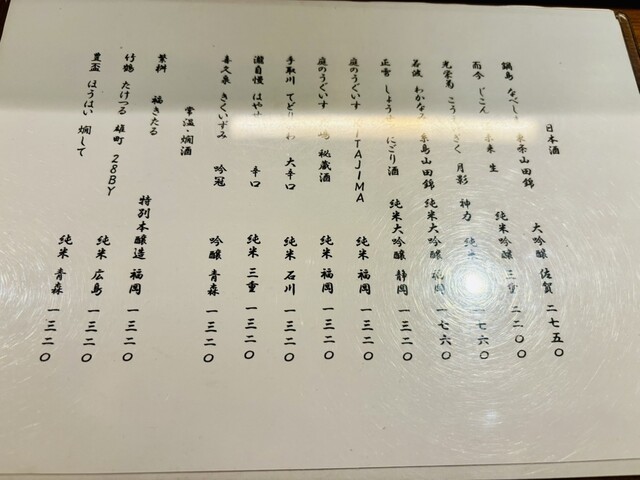 日本酒
鍋島 なべし 東条山田錦 大吟醸 佐賀 二七五〇
而今 じこん 生 純米吟醸 三重 二二〇〇
光栄菊 こう ぎく 月影 神力 純米 一七六〇
若波 わかなみ 糸島山田錦 純米大吟醸 福岡 一七六〇
正雪 しょう にごり酒 純米大吟醸 静岡 一三二〇
庭のうぐいす ITAJIMA 純米 福岡 一三二〇
庭のうぐいす 秘蔵酒 純米 福岡 一三二〇
手取川 てどり わ 大辛口 純米 石川 一三二〇
瀧自慢 はや 辛口 純米 三重 一三二〇
喜久泉 きくいずみ 吟冠 吟醸 青森 一三二〇
常温・燗酒
繁桝 福きたる 特別本醸造 福岡 一三二〇
竹鶴 たけつる 雄町 28BY 純米 広島 一三二〇
豊盃 ほうはい 燗して 純米 青森 一三二〇